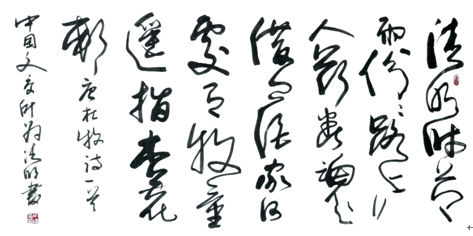 清明时节
雨纷纷路上行
人欲断魂
借问酒家何
处有牧童
遥指杏花
邨 唐杜牧诗一首
中国文交所 清明书